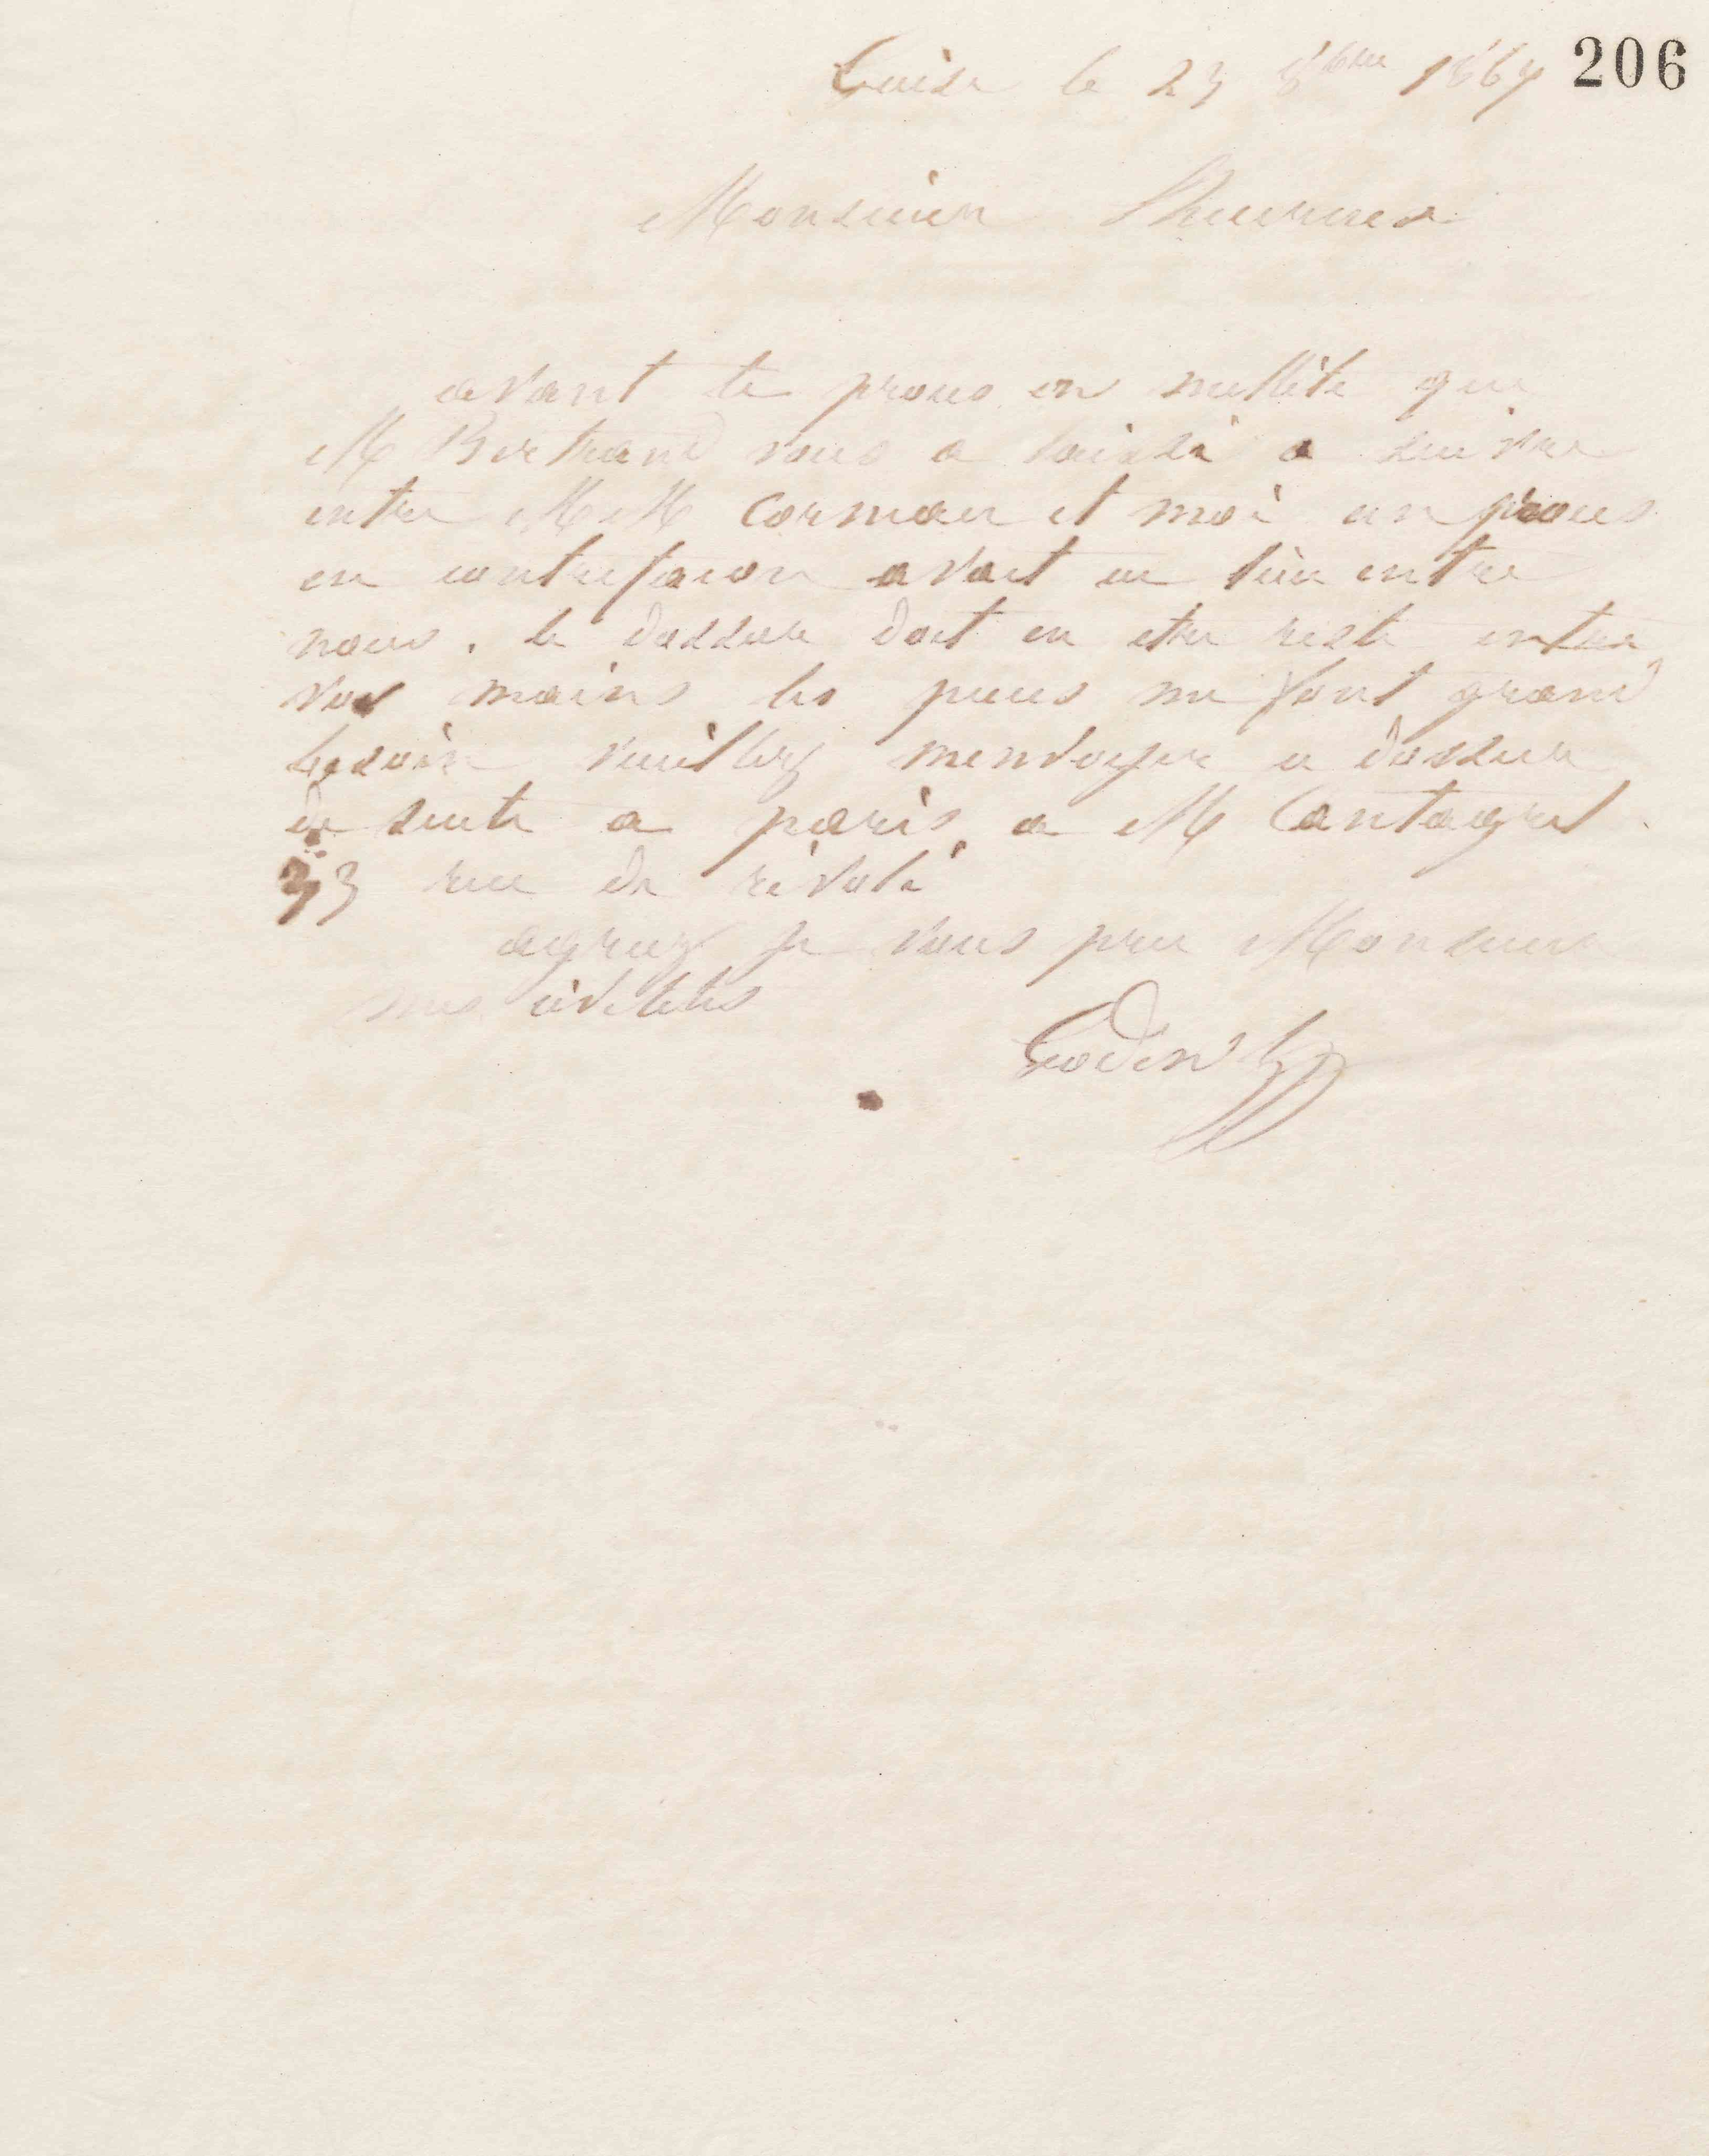 206
Guise le 23 8bre 1864
Monsieur
avant le proces en nullité que
M Bertrand vous a laissé a suivre
entre MM Corman et moi un proces
en contrefacon avait eu lieu entre
nous. le dossier doit en etre resté entre
vos mains les pieces me font grand
besoin veuillez menvoyer ce dossier
de suite a paris a M Cantagrel
33 rue de rivoli
agreez je vous prie Monsieur
mes civilités
Godin